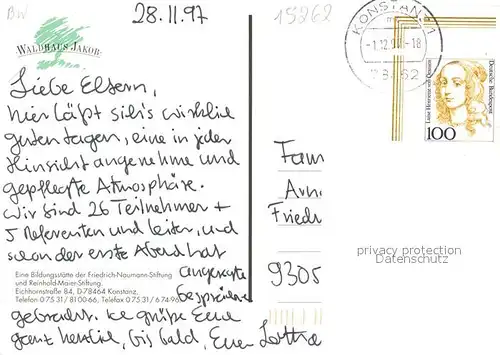 BW
28.11.97
15262
WALDHAUS JAKOB
KONSTANZ 1
-1.12.97-18
78462
Deutsche Bundespost
Luise Henriette von Oranien
100
Liebe Eltern,
hier läßt sich's wirklich
guten tagen, eine in jeder
Hinsicht angenehme und
gepflegte Atmosphäre.
Wir sind 26 Teilnehmer +
5 Referenten und Leiter, und
schon der erste Abend hat
angeregte
Gespräche
gebracht. Ich grüße Euch
ganz herzlich, bis bald, Euer Lothar
Eine Bildungsstätte der Friedrich-Naumann-Stiftung
und Reinhold-Maier-Stiftung.
Eichhornstraße 84, D-78464 Konstanz,
Telefon 0 75 31 / 81 00-66, Telefax 0 75 31 / 6 74-96
Fam
Arn
Friedr
9305
privacy protection
Datenschutz